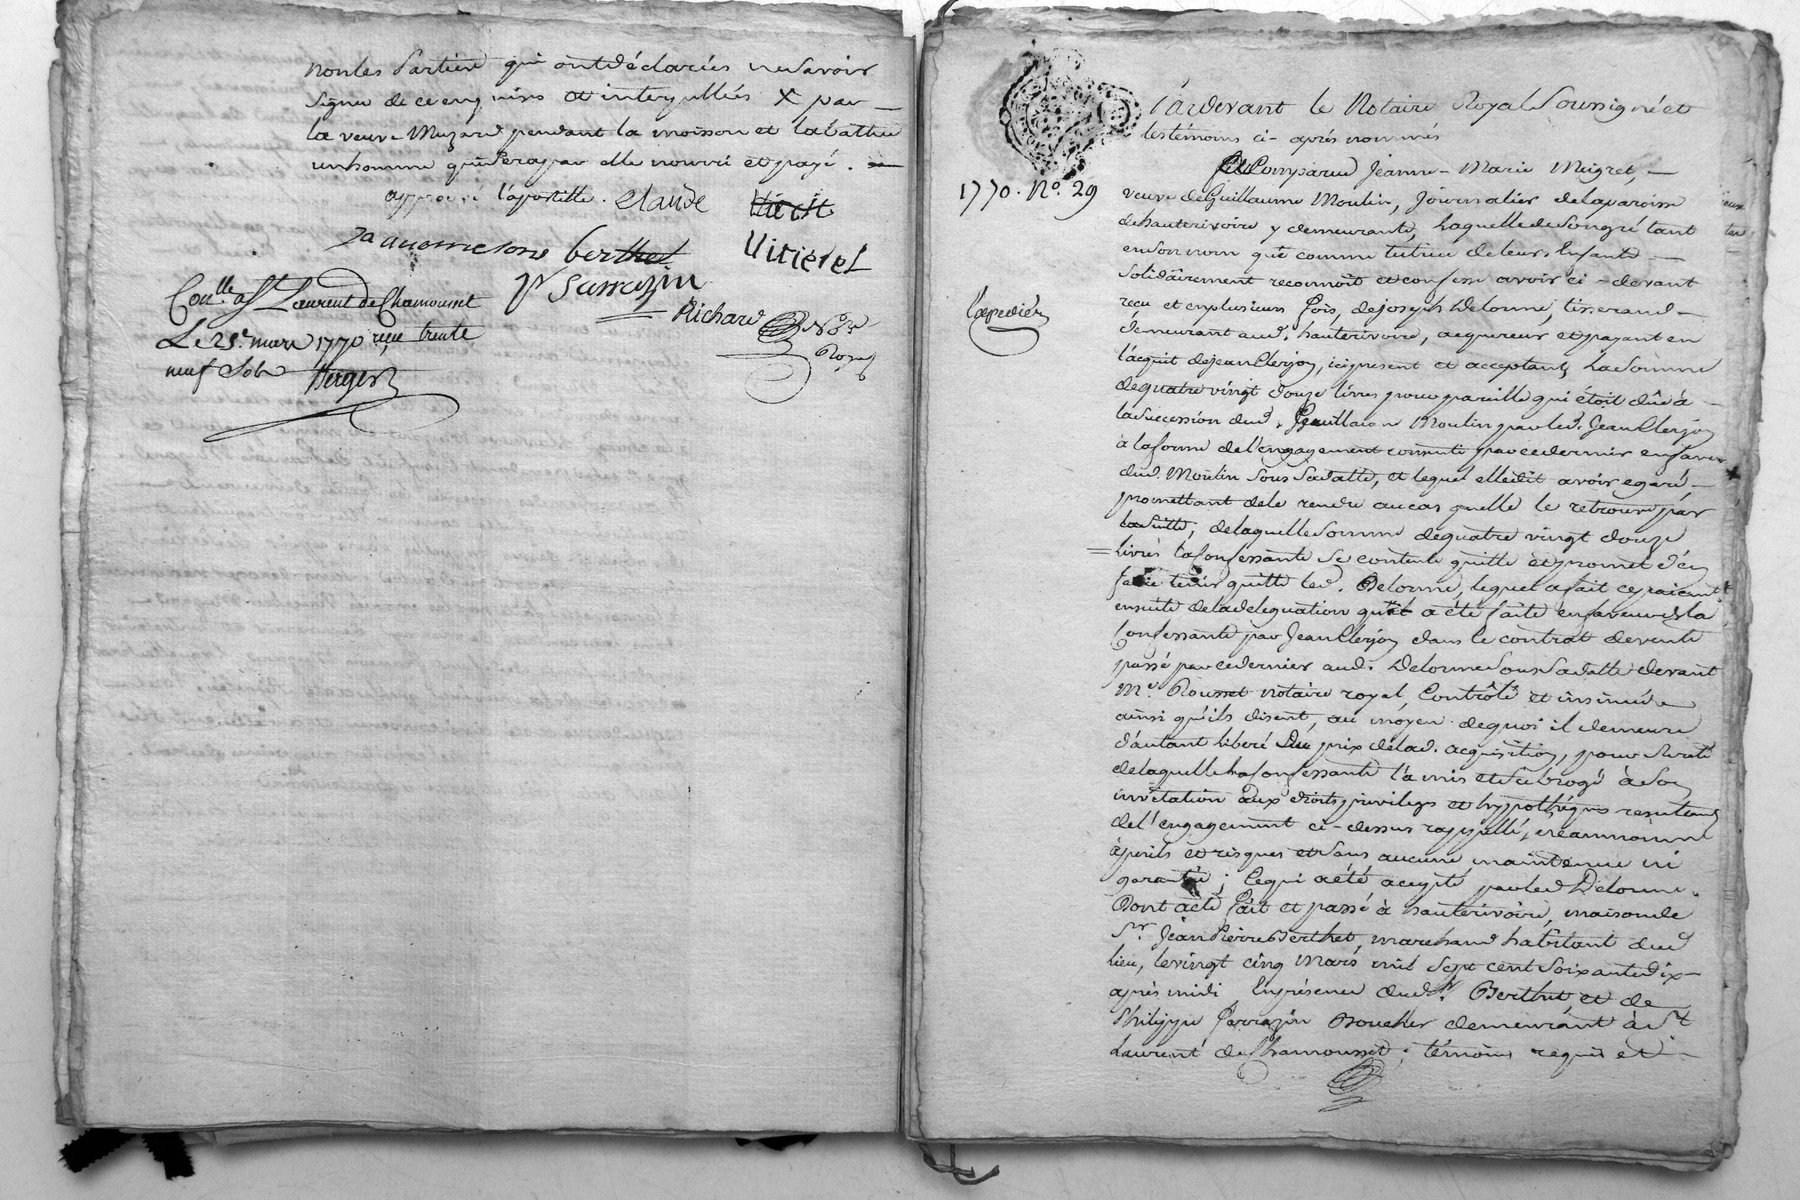 non les Parties qui ont déclarées ne savoir
signer de ce enquises et interpellées X par
la veuve Muzard pendant la moisson et la battue
un homme qui sera par elle nourri et payé.
approuvé l'apostille. Claude
Vitietet
berthet
P Sarrazin
Richard
Con.lle a St Laurent de Chamousset
Le 25. mars 1770 reçu trente
neuf Sols
1770. No. 29
Expedié
Pardevant le Notaire Royal Soussigné et
les témoins ci-après nommés
Est Comparue Jeanne-Marie Meigret,
veuve de Guillaume Moulin, Journalier de la paroisse
de hauterivoire y demeurante, Laquelle de Son gré tant
en son nom que comme tutrice de leurs Enfants
Solidairement reconnoit et confesse avoir ci-devant
reçu et en plusieurs fois, de joseph Delorme, tisserand
demeurant aud. hauterivoire, acquereur et payant en
l'acquit de jean Clerjon, ici présent et acceptant, La Somme
de quatre vingt douze livres pour pareille qui étoit dûe à
la Succession dud. Guillaume Moulin par led. Jean Clerjon
à la forme de l'engagement consenti par ce dernier en faveur
dud. Moulin Sous Sa datte, et lequel elle dit avoir egaré,
promettant de le rendre au cas quelle le retrouve par
la suitte, de laquelle Somme de quatre vingt douze
livres la Confessante Se contente quitte et promet d'en
faire tenir quitte led. Delorme, lequel a fait ce paiement
ensuite de la délequation qui a été faite en faveur de la
Confessante par Jean Clerjon dans le contrat de vente
passé par ce dernier aud. Delorme Sous Sa datte devant
Me. Rousset notaire royal, Contrôlé et insinué
ainsi qu'ils disent, au moyen de quoi il demeure
d'autant liberé Du prix de lad. acquisition, pour Sureté
de laquelle la Confessante l'a mis et Subrogé à Son
invitation aux droits privileges et hyppothéques resultans
de l'engagement ci-dessus rappellé, néanmoins
à perils et risques et Sans aucune maintenue ni
garantie; Ce qui a été accepté par led Delorme.
Dont acte Fait et passé à hauterivoire, maison de
Sr. Jean Pierre Berthet, marchand habitant dud
lieu, le vingt cinq Mars mil Sept cent Soixante dix
après midi En présence dud. Sr. Berthet et de
Philippe Sarrazin Boucher demeurant à St
Laurent de Chamousset; témoins requis et